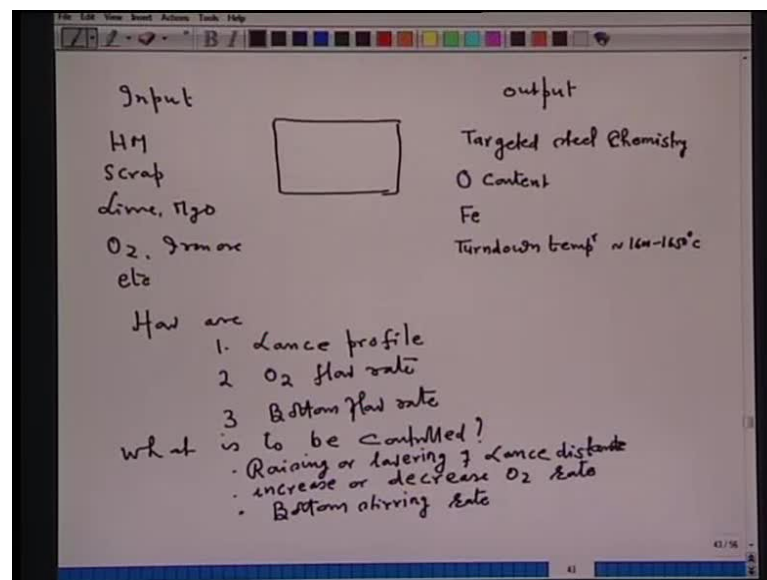 File Edit View Insert Actions Tools Help
B I
Input
output
HM
Targeted steel Chemistry
Scrap
O Content
Lime, MgO
Fe
O2, Iron ore
Turndown temp^r ~ 1600-1650°C
etc
How are
1. Lance profile
2 O2 flow rate
3 Bottom flow rate
What is to be Controlled?
· Raising or lowering of Lance distance
· increase or decrease O2 rate
· Bottom stirring rate
43/56
43